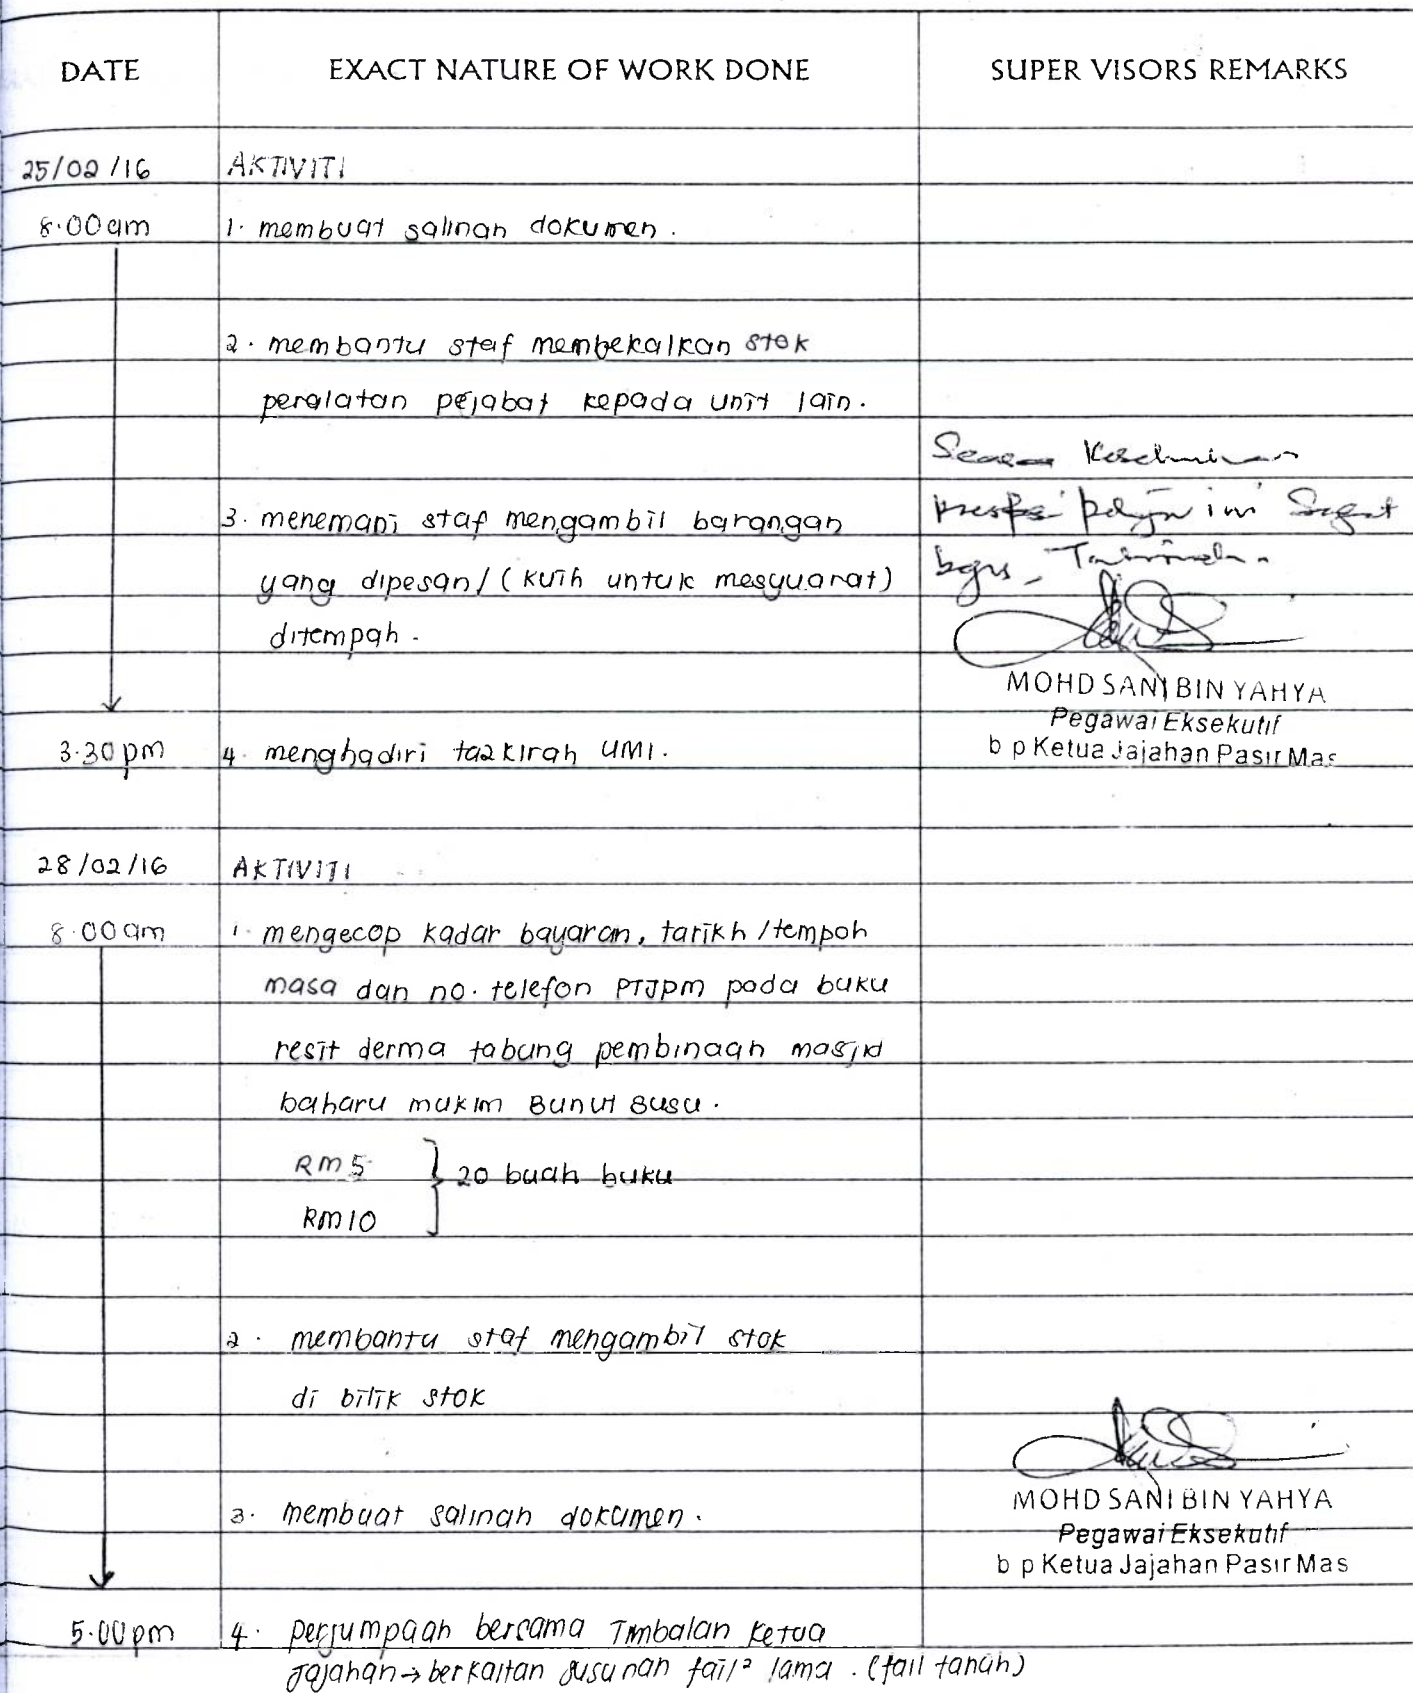 DATE EXACT NATURE OF WORK DONE SUPER VISORS REMARKS
25/02/16 AKTIVITI
8.00am 1. membuat salinan dokumen.
2. membantu staf membekalkan stok
peralatan pejabat kepada unit lain.
3. menemani staf mengambil barangan
yang dipesan/(kuih untuk mesyuarat)
ditempah.
Secara Keseluruhan
prestasi pelajar ini Sangat
bagus,
MOHD SANI BIN YAHYA
Pegawai Eksekutif
b p Ketua Jajahan Pasir Mas
3.30pm 4. menghadiri tazkirah UMI.
28/02/16 AKTIVITI
8.00am 1. mengecop kadar bayaran, tarikh/tempoh
masa dan no. telefon PTJPM pada buku
resit derma tabung pembinaan masjid
baharu mukim Bunut Susu.
RM5 } 20 buah buku
RM10
2. membantu staf mengambil stok
di bilik stok
3. membuat salinan dokumen.
MOHD SANI BIN YAHYA
Pegawai Eksekutif
b p Ketua Jajahan Pasir Mas
5.00pm 4. perjumpaan bersama Timbalan Ketua
Jajahan→berkaitan susunan fail² lama. (fail tanah)